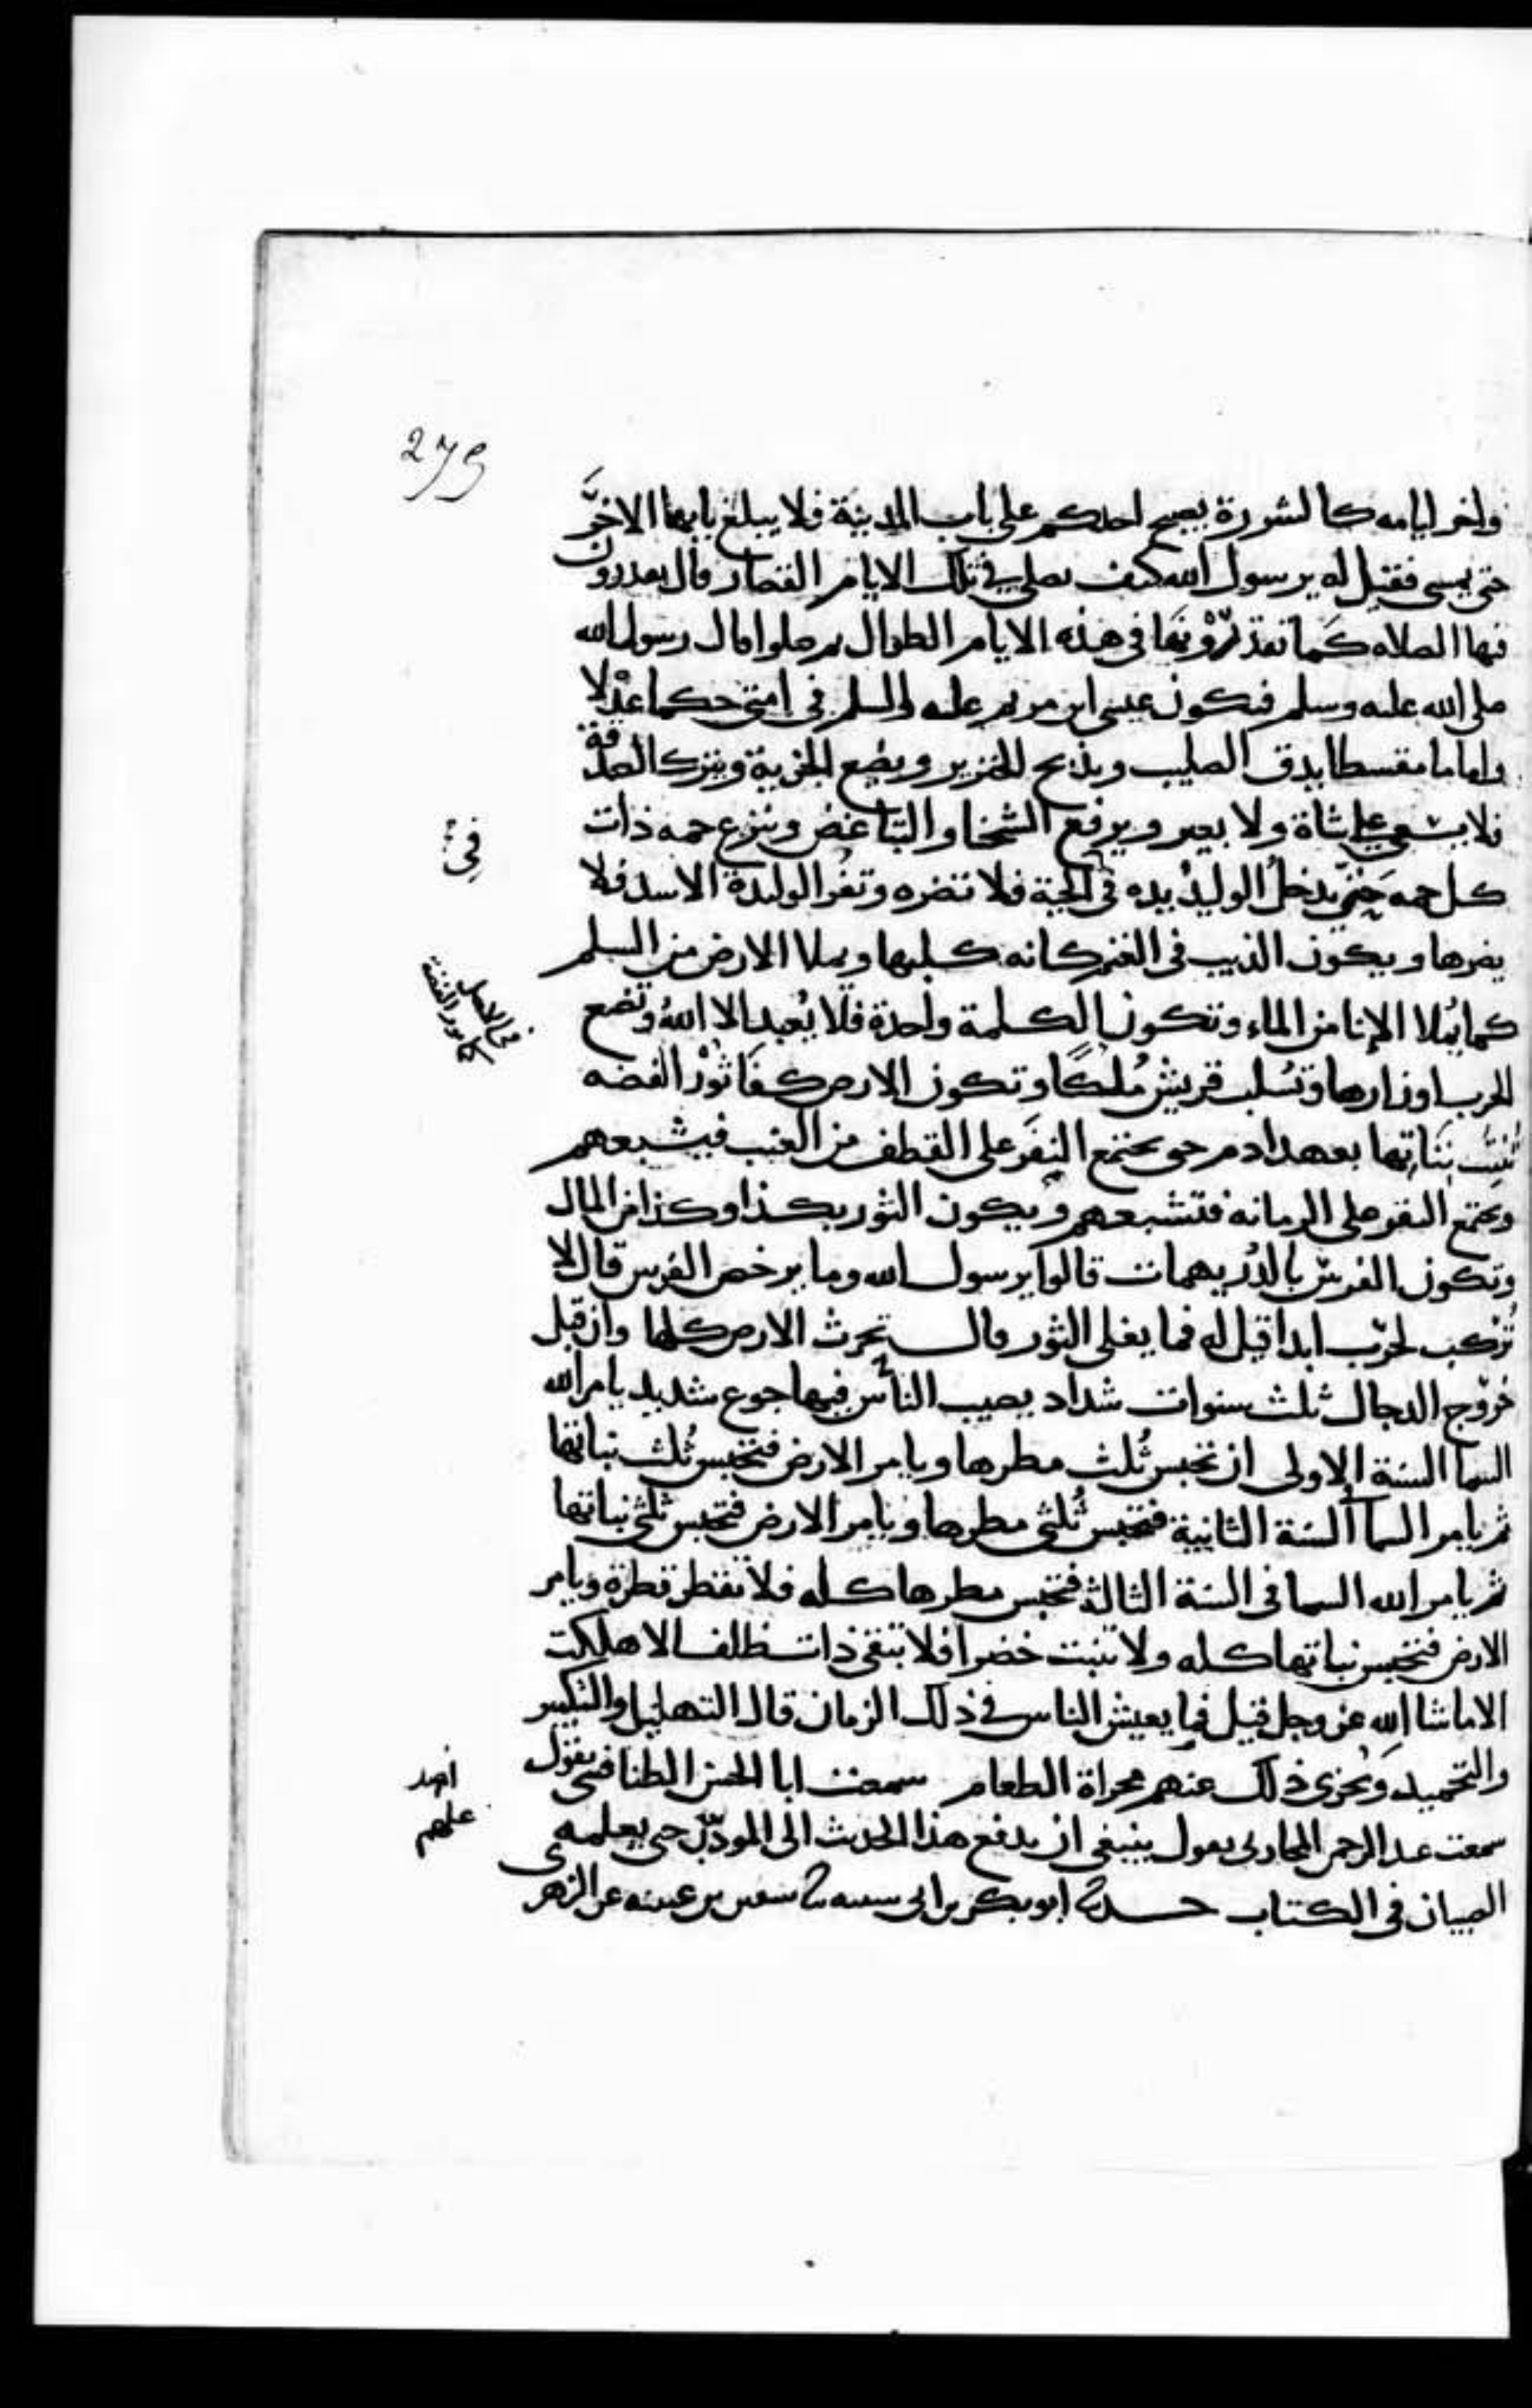 279
واخر ايامه كالشررة يصبح احدكم على باب المدينة فلا يبلغ بابها الاخر
حتى يمسي فقيل له يرسول الله كيف نصلي في تلك الايام القصار قال تقدرون
فيها الصلاه كما تقدرونها في هذه الايام الطوال ثم صلوا قال رسول الله
صلى الله عليه وسلم فيكون عيسى ابن مريم عليه السلم في امتي حكما عدلا
واماما مقسطا يدق الصليب ويذبح الخنزير ويضع الجزية ويترك الصدقة
فلا يسعى على شاة ولا بعير ويرفع الشحنا والتباغض وينزع حمه ذات
كل حمه حتى يدخل الوليد يده في الحية فلا تضره وتفر الوليدة الاسد فلا
في
يضرها ويكون الذيب في الغنم كانه كلبها ويملا الارض من السلم
كما يملا الانا من الماء وتكون الكلمة واحدة فلا يعبد الا الله وتضع
في الاصل
الحرب اوزارها وتسلب قريش ملكا وتكون الارض كفاثور الفضه
تنبت نباتها بعهد ادم حتى يجتمع النفر على القطف من العنب فيشبعهم
ويجتمع النفر على الرمانه فتشبعهم ويكون الثور بكذا وكذا من المال
وتكون الفرس بالدريهمات قالوا يرسول الله وما يرخص الفرس قال لا
تركب لحرب ابدا قيل له فما يغلي الثور قال تحرث الارض كلها وان قبل
خروج الدجال ثلث سنوات شداد يصيب الناس فيها جوع شديد يامر الله
السما السنة الاولى ان تحبس ثلث مطرها ويامر الارض فتحبس ثلث نباتها
ثم يامر السما السنة الثانية فتحبس ثلثي مطرها ويامر الارض فتحبس ثلثي نباتها
ثم يامر الله السما في السنة الثالثة فتحبس مطرها كله فلا تقطر قطرة ويامر
الارض فتحبس نباتها كله ولا تنبت خضرا فلا تبقى ذات ظلف الا هلكت
الا ما شا الله عز وجل قيل فما يعيش الناس في ذلك الزمان قال التهليل والتكبير
والتحميد ويجزى ذلك عنهم مجراة الطعام سمعت ابا الحسن الطنافسي يقول
عليهم
سمعت عبد الرحمن المحاربي يقول ينبغي ان يدفع هذا الحديث الى المودب حتى يعلمه
الصبيان في الكتاب حدثنا ابو بكر بن ابي شيبه ثنا سفين بن عيينه عن الزهري